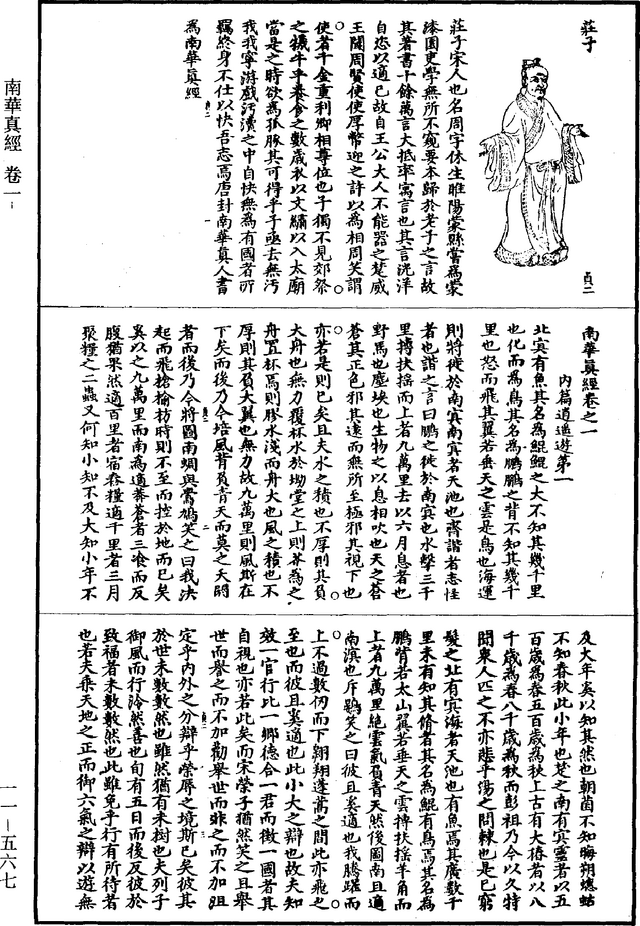 莊子
貞二
莊子宋人也名周字休生睢陽蒙縣嘗為蒙
漆園吏學無所不窺要本歸於老子之言故
其著書十餘萬言大抵率寓言也其言洸洋
自恣以適己故自王公大人不能器之楚威
王聞周賢使使厚幣迎之許以為相周笑謂
使者千金重利卿相尊位也子獨不見郊祭
之犧牛乎養食之數歲衣以文繡以入太廟
當是之時欲為孤豚其可得乎子亟去無污
我我寧游戲污瀆之中自快無為有國者所
羈終身不仕以快吾志焉唐封南華真人書
為南華真經
南華真經卷之一
內篇逍遙遊第一
北冥有魚其名為鯤鯤之大不知其幾千里
也化而為鳥其名為鵬鵬之背不知其幾千
里也怒而飛其翼若垂天之雲是鳥也海運
則將徙於南冥南冥者天池也齊諧者志怪
者也諧之言曰鵬之徙於南冥也水擊三千
里摶扶搖而上者九萬里去以六月息者也
野馬也塵埃也生物之以息相吹也天之蒼
蒼其正色邪其遠而無所至極邪其視下也
亦若是則已矣且夫水之積也不厚則其負
大舟也無力覆杯水於坳堂之上則芥為之
舟置杯焉則膠水淺而舟大也風之積也不
厚則其負大翼也無力故九萬里則風斯在
下矣而後乃今培風背負青天而莫之夭閼
者而後乃今將圖南蜩與鷽鳩笑之曰我決
起而飛槍榆枋時則不至而控於地而已矣
奚以之九萬里而南為適莽蒼者三飡而反
腹猶果然適百里者宿舂糧適千里者三月
聚糧之二蟲又何知小知不及大知小年不
及大年奚以知其然也朝菌不知晦朔蟪蛄
不知春秋此小年也楚之南有冥靈者以五
百歲為春五百歲為秋上古有大椿者以八
千歲為春八千歲為秋而彭祖乃今以久特
聞衆人匹之不亦悲乎湯之問棘也是已窮
髮之北有冥海者天池也有魚焉其廣數千
里未有知其脩者其名為鯤有鳥焉其名為
鵬背若太山翼若垂天之雲摶扶搖羊角而
上者九萬里絕雲氣負青天然後圖南且適
南溟也斥鴳笑之曰彼且奚適也我騰躍而
上不過數仞而下翱翔蓬蒿之間此亦飛之
至也而彼且奚適也此小大之辯也故夫知
效一官行比一鄉德合一君而徵一國者其
自視也亦若此矣而宋榮子猶然笑之且舉
世而譽之而不加勸舉世而非之而不加沮
定乎內外之分辯乎榮辱之境斯已矣彼其
於世未數數然也雖然猶有未樹也夫列子
御風而行泠然善也旬有五日而後反彼於
致福者未數數然也此雖免乎行有所待者
也若夫乘天地之正而御六氣之辯以遊無
南華真經 卷一
一一－五六七